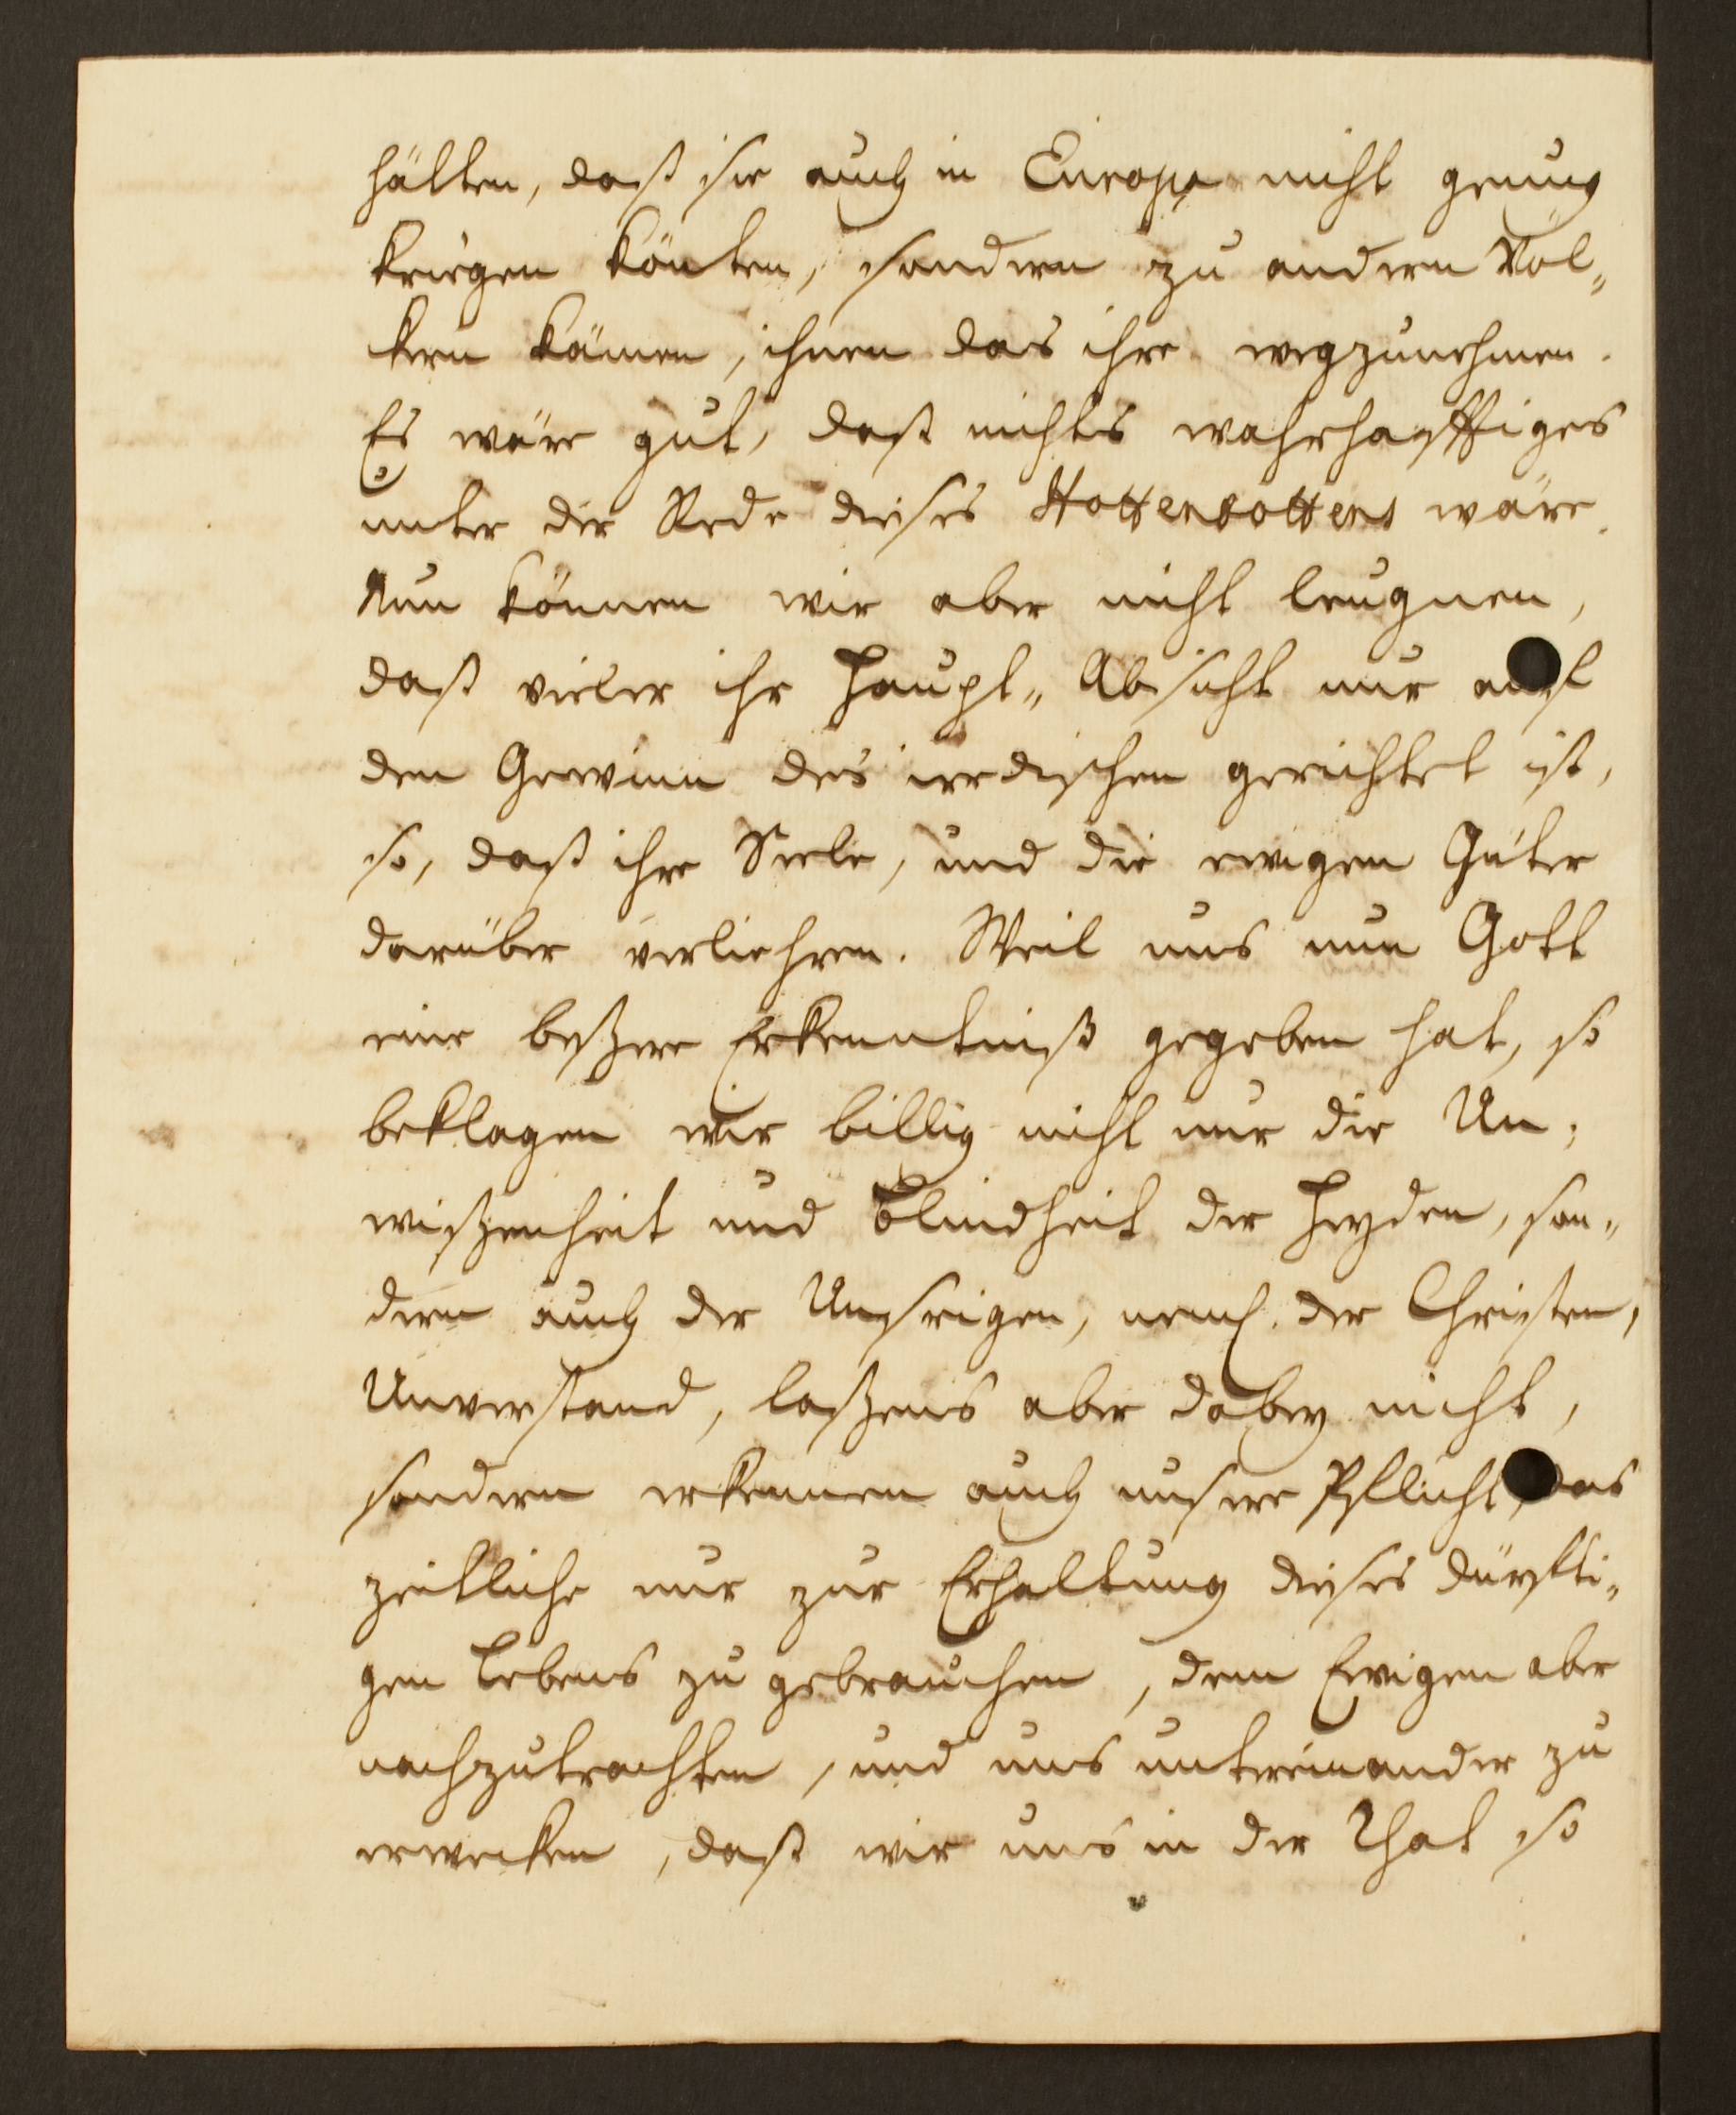 hätten, daß sie auch in Europa nicht genug
kriegen könten, sondern zu andern Völ„
kern kämen, ihnen das ihre wegzunehmen.
Es wäre gut, daß nichts wahrhafftiges
unter der Rede dieses Hottentottens wäre.
Nun können wir aber nicht leugnen,
daß vieler ihr Haupt„ Absicht nur auf
den Gewinn des irrdischen gerichtet ist,
so, daß ihre Seele, und die ewigen Güter
darüber verliehren. Weil uns nun Gott
eine beßere Erkenntniß gegeben hat, so
beklagen wir billig nicht nur die Un„
wißenheit und Blindheit der Heyden, son„
dern auch der Unsrigen, neml. der Christen,
Unverstand, laßens aber dabey nicht,
sondern erkennen auch unsere Pflicht, das
zeitliche nur zur Erhaltung dieses dürffti„
gen Lebens zu gebrauchen, dem Ewigen aber
nachzutrachten, und uns untereinander zu
erwecken, daß wir uns in der That so